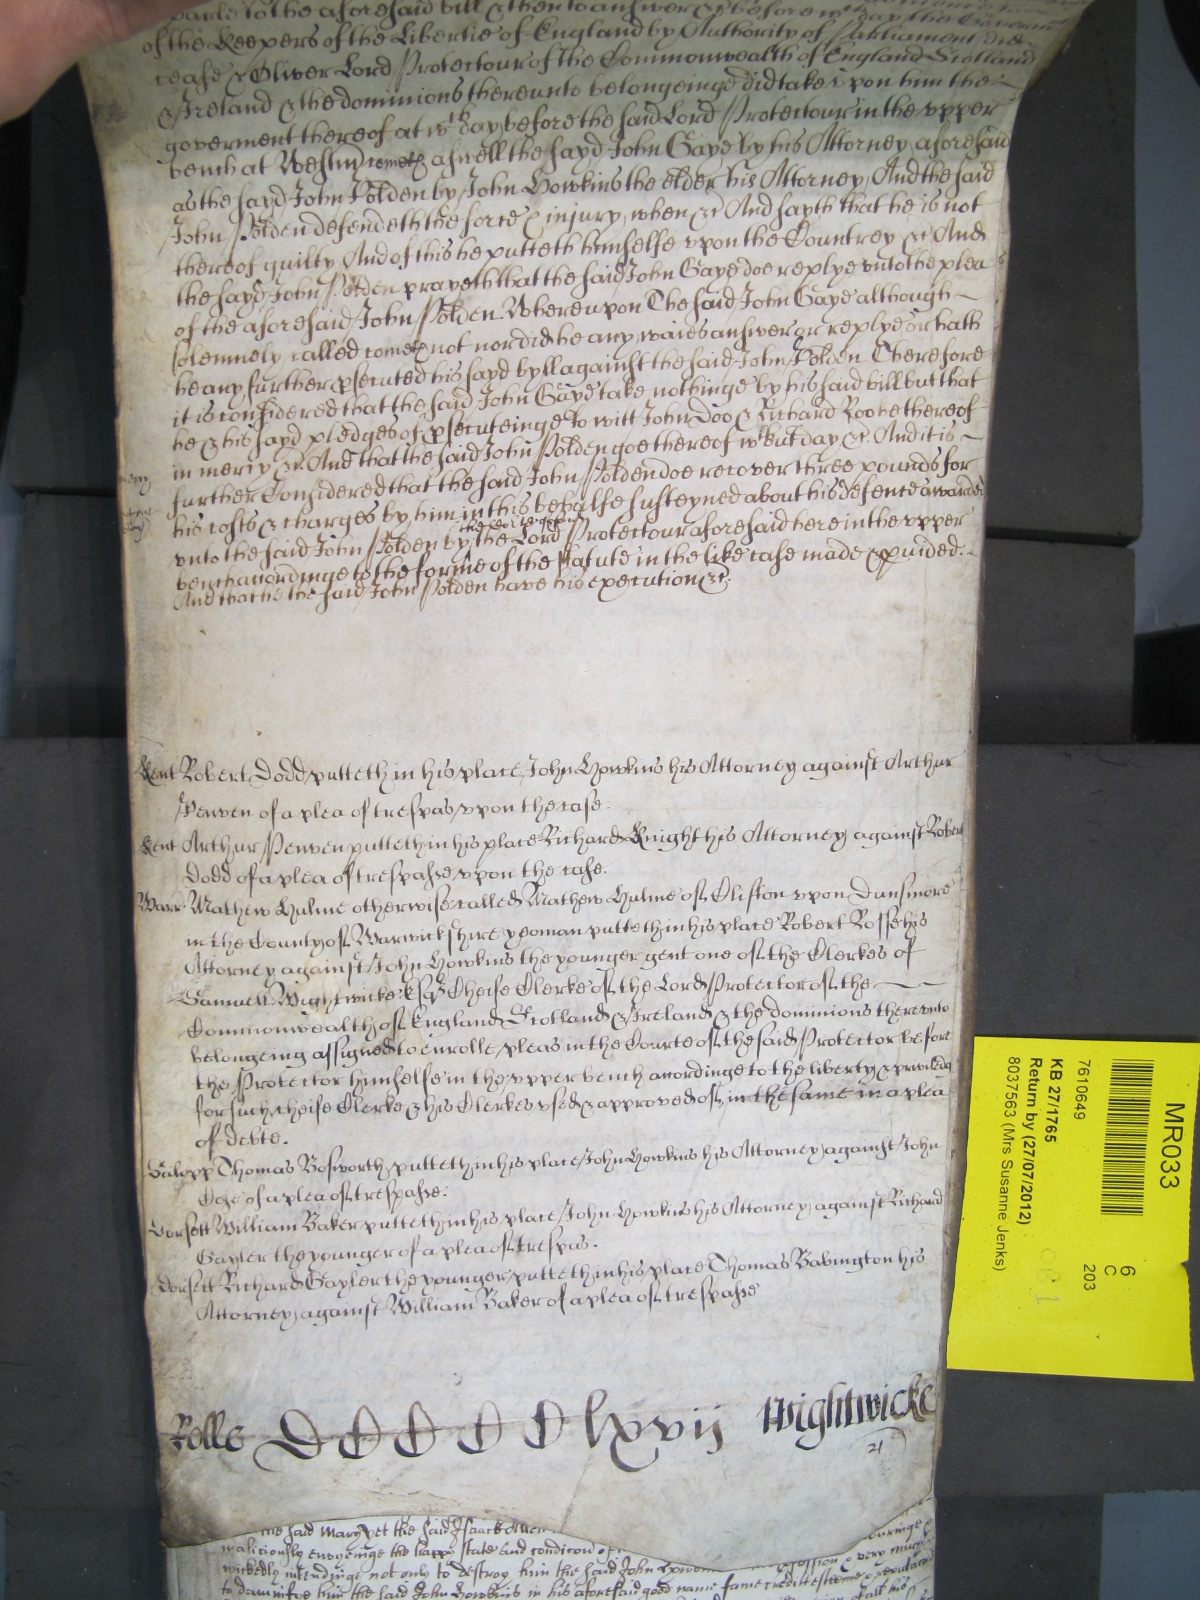 to the aforesaid bill & then to answer &c before wch day the Governmt
of the Keepers of the Libertie of England by Authority of Parliament did
cease & Oliver Lord Protectour of the Commonwealth of England Scotland
& Ireland & the dominions thereunto belongeinge did take upon him the
goverment thereof at wch day before the said Lord Protectour in the upper
bench at Westm cometh aswell the sayd John Gaye by his Attorney aforesaid
as the sayd John Polden by John Howkins the elder his Attorney And the said
John Polden defendeth the force & injury when &c And sayth that he is not
thereof guilty And of this he putteth himselfe upon the Countrey &c And
the sayd John Polden prayeth that the said John Gaye doe replye unto the plea
of the aforesaid John Polden Whereupon The said John Gaye although
solemnely called cometh not nor did he any waies answer or replye or hath
he any further psecuted his sayd byll against the said John Polden Therefore
it is considered that the said John Gaye take nothinge by his said bill but that
he & his sayd pledges of psecuteinge to witt John Doo & Richard Roo be thereof
in mercy &c And that the said John Polden goe thereof wthout day &c And it is
mercy
further Considered that the said John Polden doe recover three pounds for
his costs & charges by him in this behalfe susteyned about his defence awarded
unto the said John Polden by the Lord Protectour aforesaid here in the upper
bench accordinge to the forme of the statute in the like case made & pvided.
And that he the said John Polden have his execution &c.
Kent Robert Dodd putteth in his place John Howkins his Attorney against Arthur
Penven of a plea of trespas upon the case.
Kent Arthur Penven putteth in his place Richard Knight his Attorney against Robert
Dodd of a plea of trespasse upon the case.
Warr Mathew Hulme otherwise called Mathew Hulme of Clifton upon Dunsmore
in the County of Warwickshire yeoman putteth in his place Robert Rosse his
Attorney against John Howkins the younger gent one of the Clerkes of
Samuell Wightwicke Esqr Cheife Clerke of the Lord Protector of the
Commonwealth of England Scotland & Ireland & the dominions thereunto
belongeing assigned to enrolle pleas in the Courte of the said Protector before
the Protector himselfe in the upper bench accordinge to the liberty & priviledg
for such cheife Clerke & his Clerkes used & approved of in the same in a plea
of debte.
Salopp Thomas Bosworth putteth in his place John Howkins his Attorney against John
Oge of a plea of trespasse.
Dorsett William Baker putteth in his place John Howkins his Attorney against Richard
Gayler the younger of a plea of trespas.
Dorsett Richard Gayler the younger putteth in his place Thomas Babington his
Attorney against William Baker of a plea of trespasse
Rolle DCCCClxvij Wightwicke
21
the said Mary yet the said Isaack
maliciously envyeinge the happy state and condicon of
wickedly intendinge not only to destroy him the said John Howkins
to damnifye him the said John Howkins in his aforesaid good name fame credit esteeme
MR033
7610649
6
C
203
KB 27/1765
Return by (27/07/2012)
8037563 (Mrs Susanne Jenks)